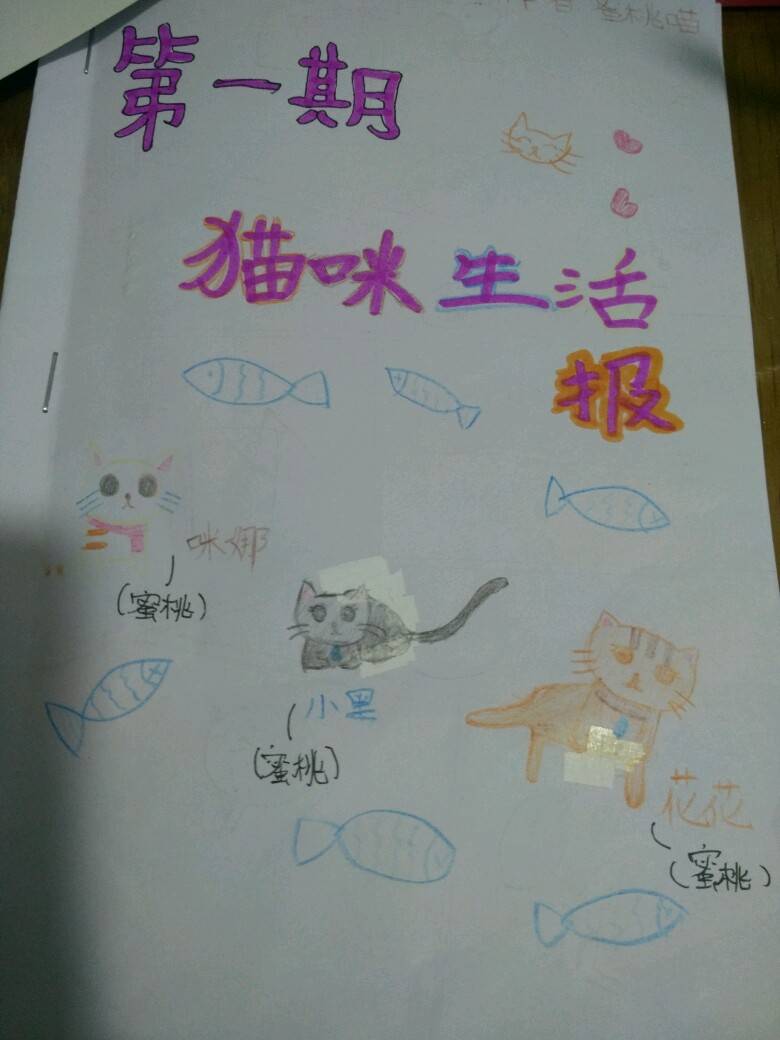 蜜桃喵
第一期
猫咪生活
报
咪娜
(蜜桃)
小黑
(蜜桃)
花花
(蜜桃)